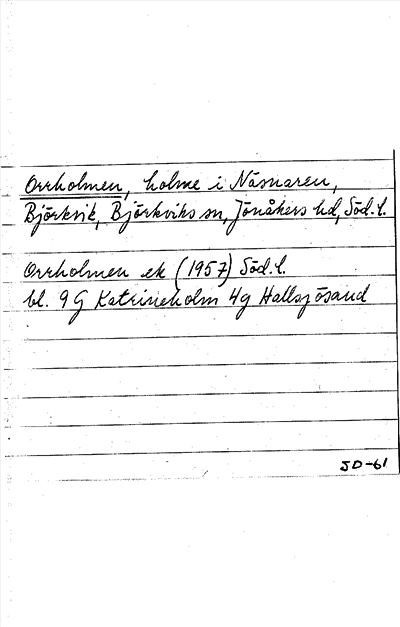 Orrholmen, holme i Näsnaren,
Björkvik, Björkviks sn, Jönåkers hd, Söd. l.
Orrholmen ek (1957) Söd. l.
bl. 9 G Katrineholm 4g Hallsjösand
SD-61